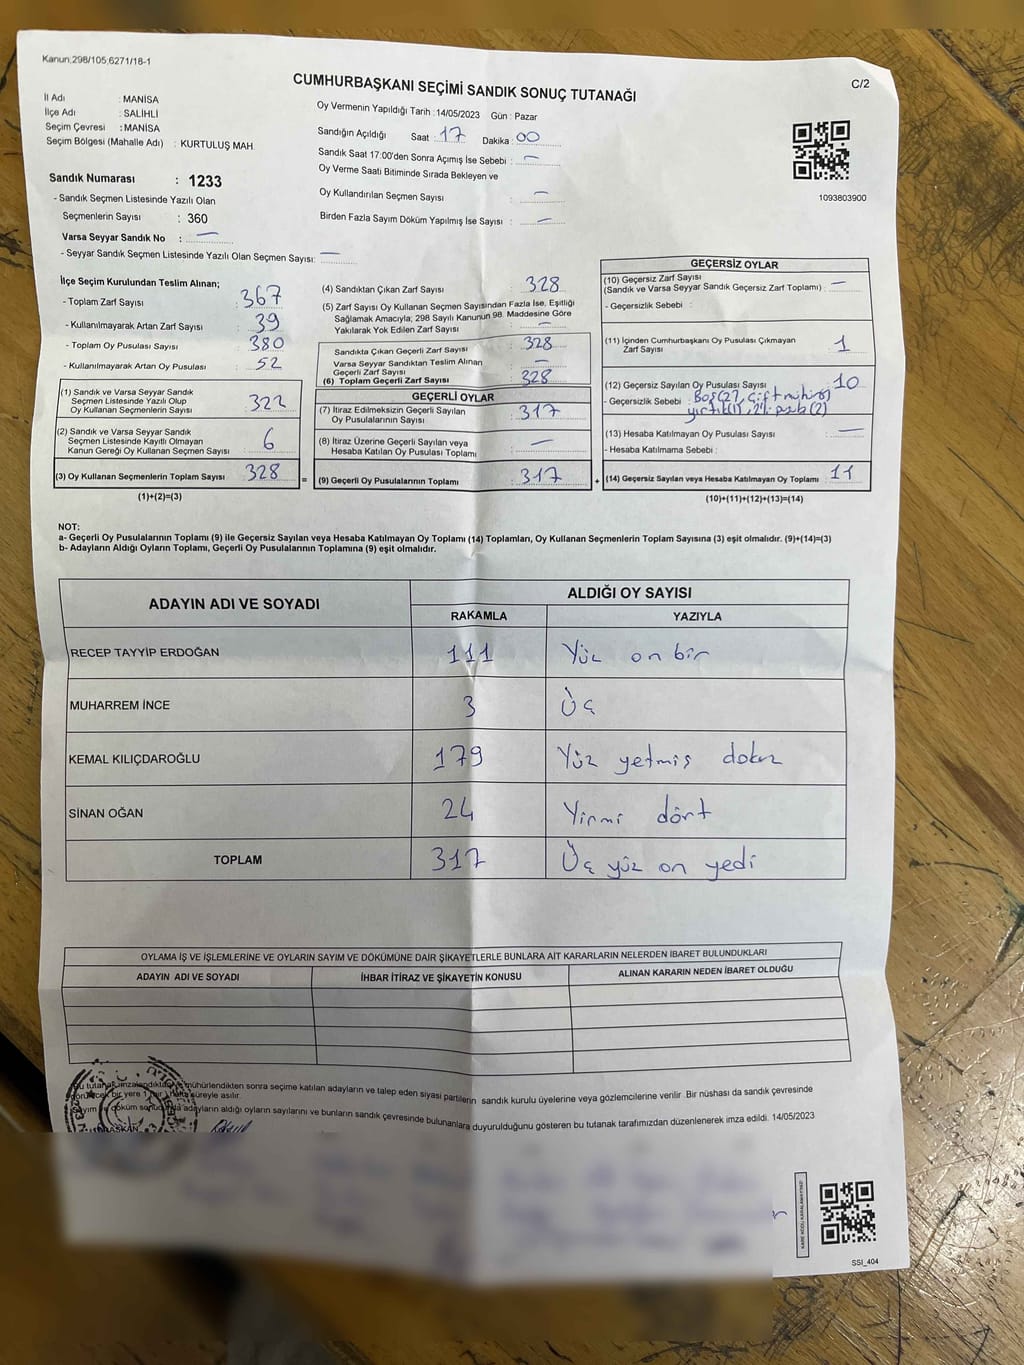 Kanun:298/105;6271/18-1
C/2
CUMHURBAŞKANI SEÇİMİ SANDIK SONUÇ TUTANAĞI
İl Adı : MANİSA
İlçe Adı : SALİHLİ
Seçim Çevresi : MANİSA
Seçim Bölgesi (Mahalle Adı) : KURTULUŞ MAH.
Oy Vermenin Yapıldığı Tarih : 14/05/2023 Gün : Pazar
Sandığın Açıldığı Saat : 17 Dakika : 00
Sandık Saat 17:00'den Sonra Açımış İse Sebebi : —
Oy Verme Saati Bitiminde Sırada Bekleyen ve
Oy Kullandırılan Seçmen Sayısı : —
Birden Fazla Sayım Döküm Yapılmış İse Sayısı : —
1093803900
Sandık Numarası : 1233
- Sandık Seçmen Listesinde Yazılı Olan
Seçmenlerin Sayısı : 360
Varsa Seyyar Sandık No : —
- Seyyar Sandık Seçmen Listesinde Yazılı Olan Seçmen Sayısı: —
İlçe Seçim Kurulundan Teslim Alınan;
- Toplam Zarf Sayısı : 367
- Kullanılmayarak Artan Zarf Sayısı : 39
- Toplam Oy Pusulası Sayısı : 380
- Kullanılmayarak Artan Oy Pusulası : 52
(1) Sandık ve Varsa Seyyar Sandık
Seçmen Listesinde Yazılı Olup
Oy Kullanan Seçmenlerin Sayısı : 322
(2) Sandık ve Varsa Seyyar Sandık
Seçmen Listesinde Kayıtlı Olmayan
Kanun Gereği Oy Kullanan Seçmen Sayısı : 6
(3) Oy Kullanan Seçmenlerin Toplam Sayısı : 328
(1)+(2)=(3)
(4) Sandıktan Çıkan Zarf Sayısı : 328
(5) Zarf Sayısı Oy Kullanan Seçmen Sayısından Fazla İse, Eşitliği
Sağlamak Amacıyla; 298 Sayılı Kanunun 98. Maddesine Göre
Yakılarak Yok Edilen Zarf Sayısı : —
Sandıkta Çıkan Geçerli Zarf Sayısı : 328
Varsa Seyyar Sandıktan Teslim Alınan
Geçerli Zarf Sayısı : —
(6) Toplam Geçerli Zarf Sayısı : 328
GEÇERLİ OYLAR
(7) İtiraz Edilmeksizin Geçerli Sayılan
Oy Pusulalarının Sayısı : 317
(8) İtiraz Üzerine Geçerli Sayılan veya
Hesaba Katılan Oy Pusulası Toplamı : —
= (9) Geçerli Oy Pusulalarının Toplamı : 317
GEÇERSİZ OYLAR
(10) Geçersiz Zarf Sayısı
(Sandık ve Varsa Seyyar Sandık Geçersiz Zarf Toplamı) : —
- Geçersizlik Sebebi :
(11) İçinden Cumhurbaşkanı Oy Pusulası Çıkmayan
Zarf Sayısı : 1
(12) Geçersiz Sayılan Oy Pusulası Sayısı : 10
- Geçersizlik Sebebi :
yırtık(1)
(13) Hesaba Katılmayan Oy Pusulası Sayısı : —
- Hesaba Katılmama Sebebi :
+ (14) Geçersiz Sayılan veya Hesaba Katılmayan Oy Toplamı : 11
(10)+(11)+(12)+(13)=(14)
NOT:
a- Geçerli Oy Pusulalarının Toplamı (9) ile Geçersiz Sayılan veya Hesaba Katılmayan Oy Toplamı (14) Toplamları, Oy Kullanan Seçmenlerin Toplam Sayısına (3) eşit olmalıdır. (9)+(14)=(3)
b- Adayların Aldığı Oyların Toplamı, Geçerli Oy Pusulalarının Toplamına (9) eşit olmalıdır.
ADAYIN ADI VE SOYADI
ALDIĞI OY SAYISI
RAKAMLA YAZIYLA
RECEP TAYYİP ERDOĞAN 111 Yüz on bir
MUHARREM İNCE 3 Üç
KEMAL KILIÇDAROĞLU 179 Yüz yetmiş dokuz
SİNAN OĞAN 24 Yirmi dört
TOPLAM 317 Üç yüz on yedi
OYLAMA İŞ VE İŞLEMLERİNE VE OYLARIN SAYIM VE DÖKÜMÜNE DAİR ŞİKAYETLERLE BUNLARA AİT KARARLARIN NELERDEN İBARET BULUNDUKLARI
ADAYIN ADI VE SOYADI İHBAR İTİRAZ VE ŞİKAYETİN KONUSU ALINAN KARARIN NEDEN İBARET OLDUĞU
mühürlendikten sonra seçime katılan adayların ve talep eden siyasi partilerin sandık kurulu üyelerine veya gözlemcilerine verilir. Bir nüshası da sandık çevresinde
süreyle asılır.
adayların aldığı oyların sayılarını ve bunların sandık çevresinde bulunanlara duyurulduğunu gösteren bu tutanak tarafımızdan düzenlenerek imza edildi. 14/05/2023
SSI_404